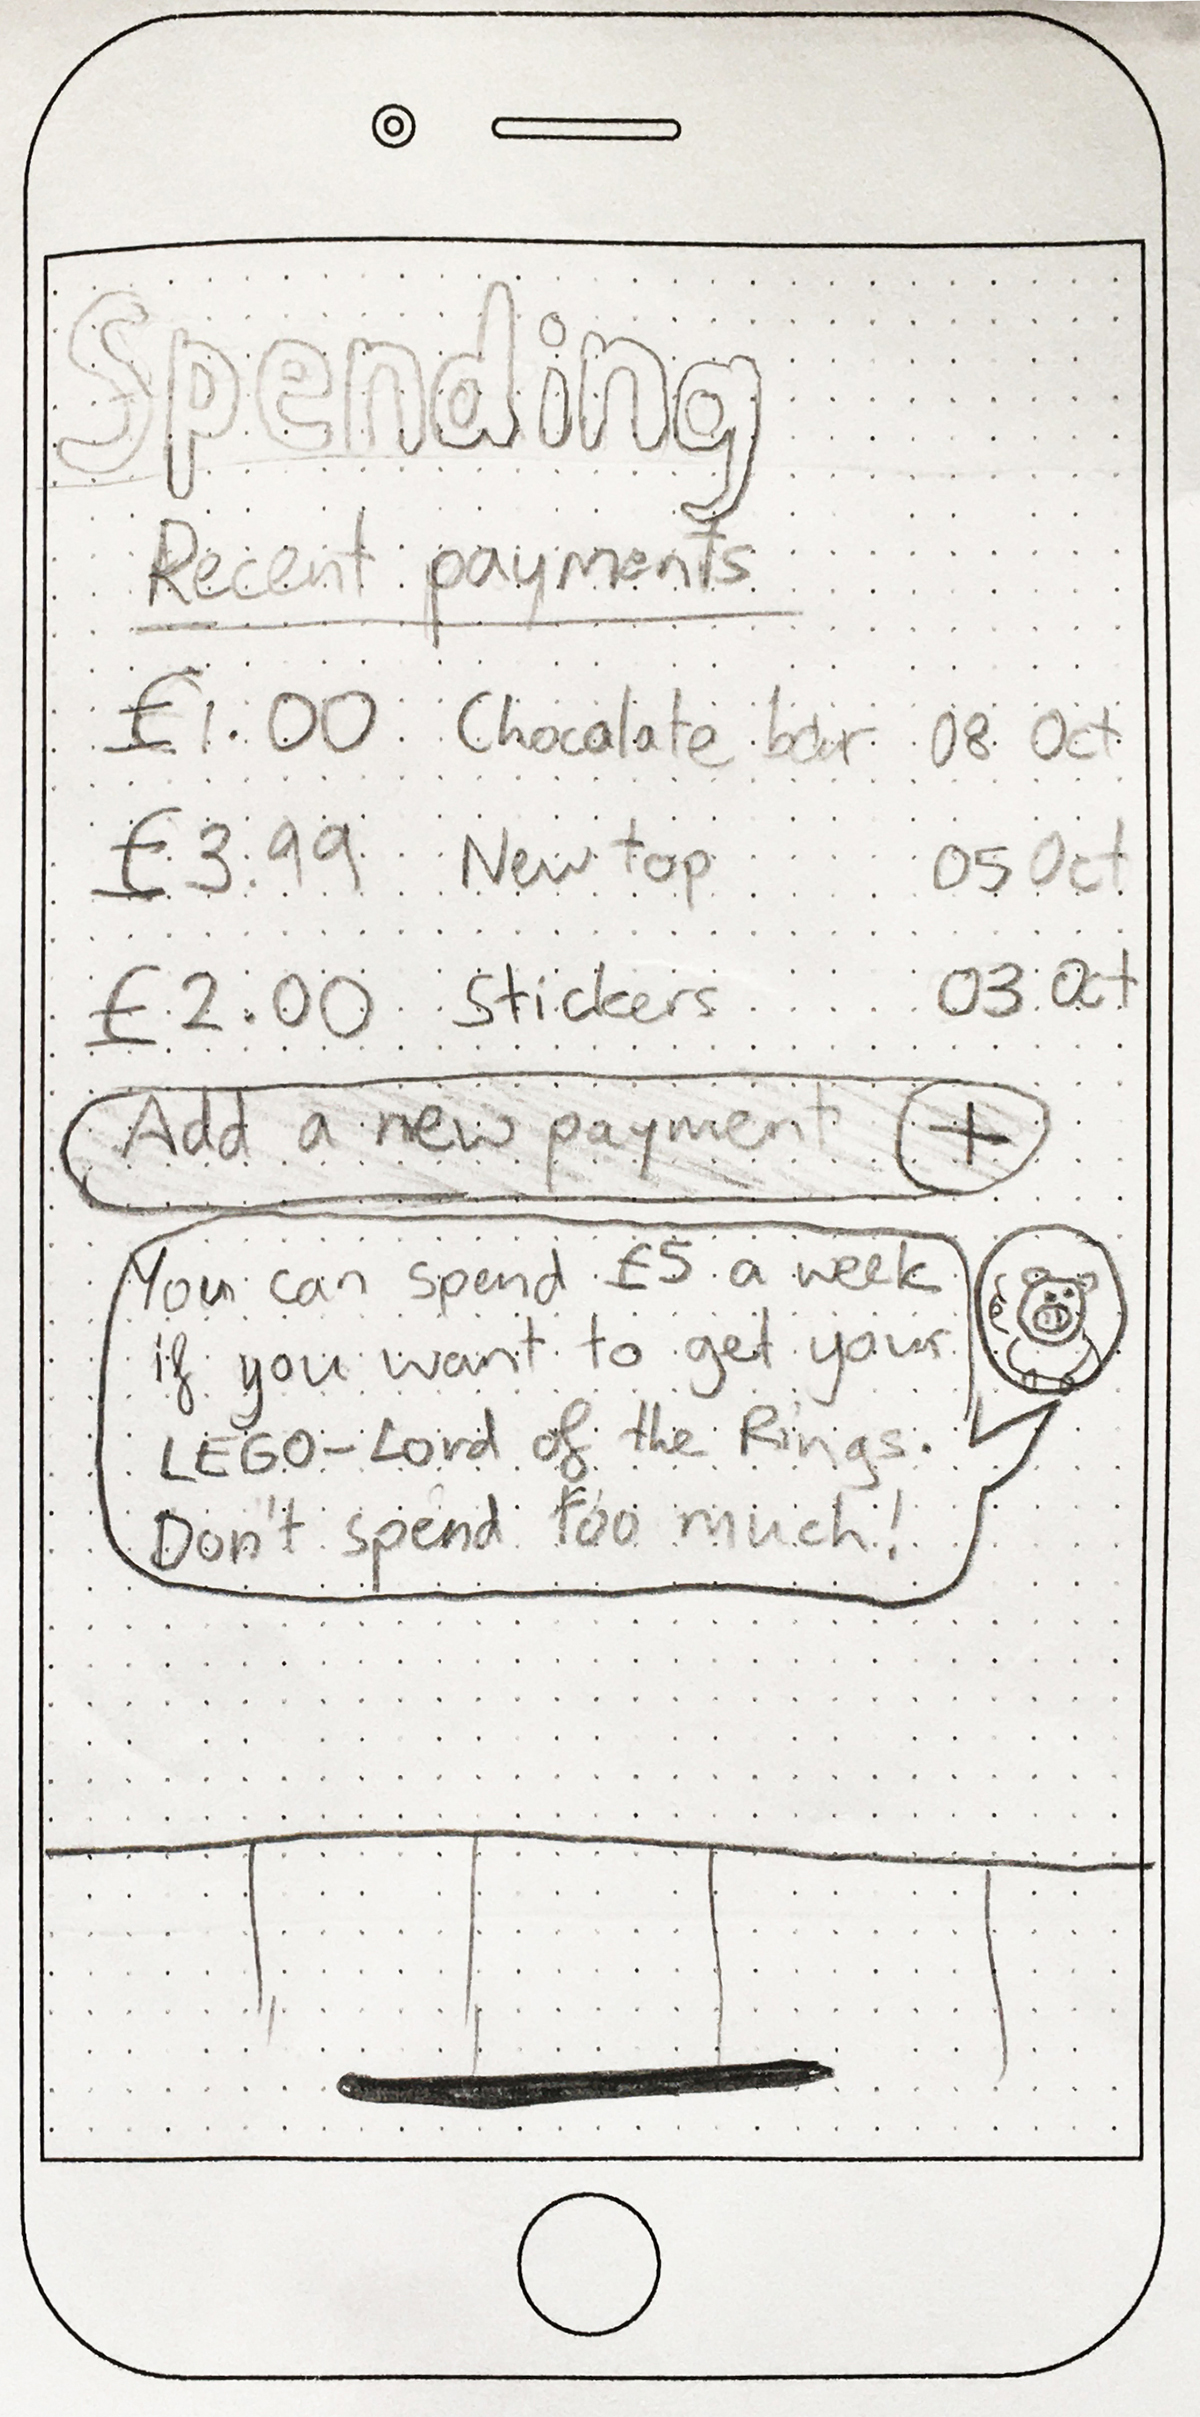 Spending
Recent payments
£1.00 Chocalate bar 08 Oct
£3.99 New top 05 Oct
£2.00 Stickers 03 Oct
Add a new payment +
You can spend £5 a week
if you want to get your
LEGO-Lord of the Rings.
Don't spend too much!